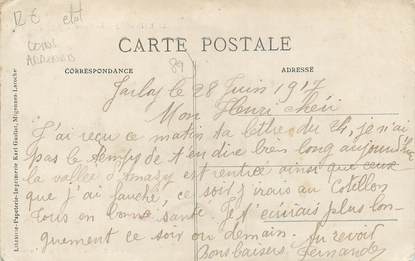 12 € etat
CARTE POSTALE
CORRESPONDANCE
89
ADRESSE
Librairie-Papeterie-Imprimerie Karl Guillot, Mignenne-Laroche
le 28 Juin 1917
Mon Henri chéri
J'ai reçu ce matin ta lettre du 24, je n'ai
pas le temps de t'en dire bien long aujourd'hui
la vallée d' est rentrée ainsi que ceux
que j'ai fauché, ce soir j'irais au
Tous en bonne santé. Je t'écrirais plus lon-
guement ce soir ou demain. Au revoir
Bons baisers, Fernande